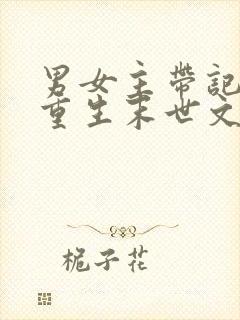 男女主带記
重生末世文
栀子花